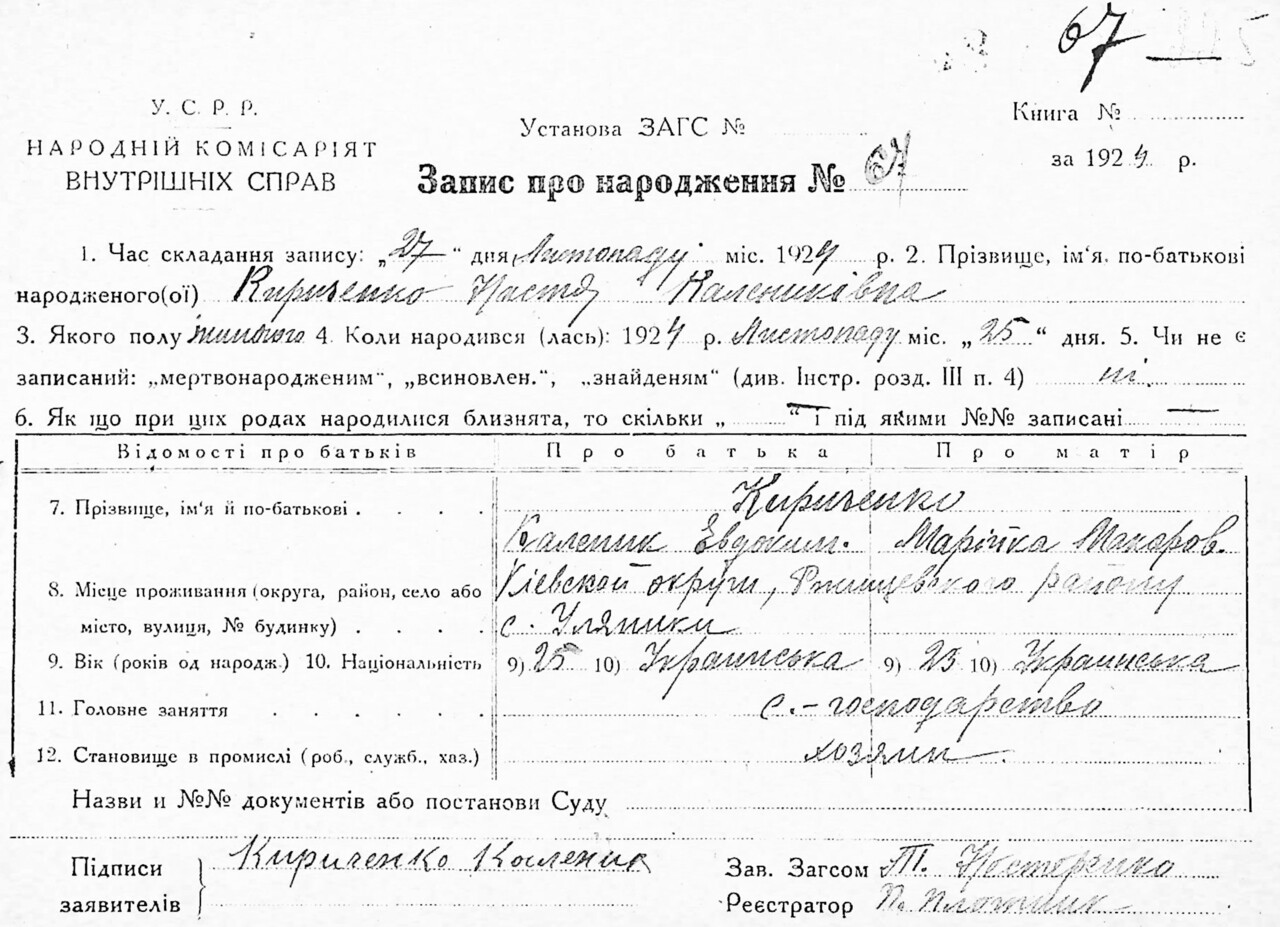 67
У. С. Р. Р.
НАРОДНІЙ КОМІСАРІЯТ
ВНУТРІШНІХ СПРАВ
Установа ЗАГС №
Книга №
за 1924 р.
Запис про народження № 67
1. Час складання запису: „27“ дня Листопаду міс. 1924 р. 2. Прізвище, ім'я, по-батькові
народженого(ої) Кириченко Настя Калениківна
3. Якого полу жіночого 4. Коли народився (лась): 1924 р. Листопаду міс. „25“ дня. 5. Чи не є
записаний: „мертвонародженим“, „всиновлен.“, „знайденям“ (див. Інстр. розд. III п. 4) ні.
6. Як що при цих родах народилися близнята, то скільки „—“ і під якими №№ записані —
Відомості про батьків Про батька Про матір
7. Прізвище, ім'я й по-батькові . . . . Кириченко
Каленик Евдоким. Марійка Макаров.
8. Місце проживання (округа, район, село або Кіевской округи, Ржищевського району
місто, вулиця, № будинку) . . . . с. Уляники
9. Вік (років од народж.) 10. Національність 9) 25 10) Украинська 9) 25 10) Украинська
11. Головне заняття . . . . . . с.-господарство
12. Становище в промислі (роб., служб., хаз.) хозяин.
Назви и №№ документів або постанови Суду
Підписи Кириченко Каленик
заявителів
Зав. Загсом Т. Нестеренко
Реєстратор П. Плотник